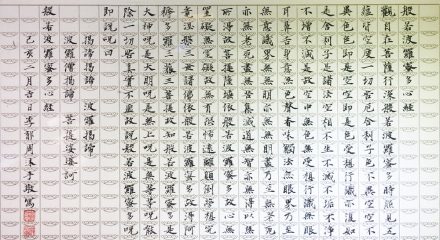 般若波羅蜜多心經
觀自在菩薩行深般若波羅蜜多時照見五
蘊皆空度一切苦厄舍利子色不異空空不
異色色即是空空即是色受想行識亦復如
是舍利子是諸法空相不生不滅不垢不淨
不增不減是故空中無色無受想行識無眼
耳鼻舌身意無色聲香味觸法無眼界乃至
無意識界無無明亦無無明盡乃至無老死
亦無老死盡無苦集滅道無智亦無得以無
所得故菩提薩埵依般若波羅蜜多故心無
罣礙無罣礙故無有恐怖遠離顛倒夢想究
竟涅槃三世諸佛依般若波羅蜜多故得阿
耨多羅三藐三菩提故知般若波羅蜜多是
大神呪是大明呪是無上呪是無等等呪能
除一切苦真實不虛故說般若波羅蜜多呪
即說呪曰
揭諦揭諦 波羅揭諦
波羅僧揭諦 菩提娑婆訶
般若波羅蜜多心經
己亥二月吉日李郁周沐手敬寫